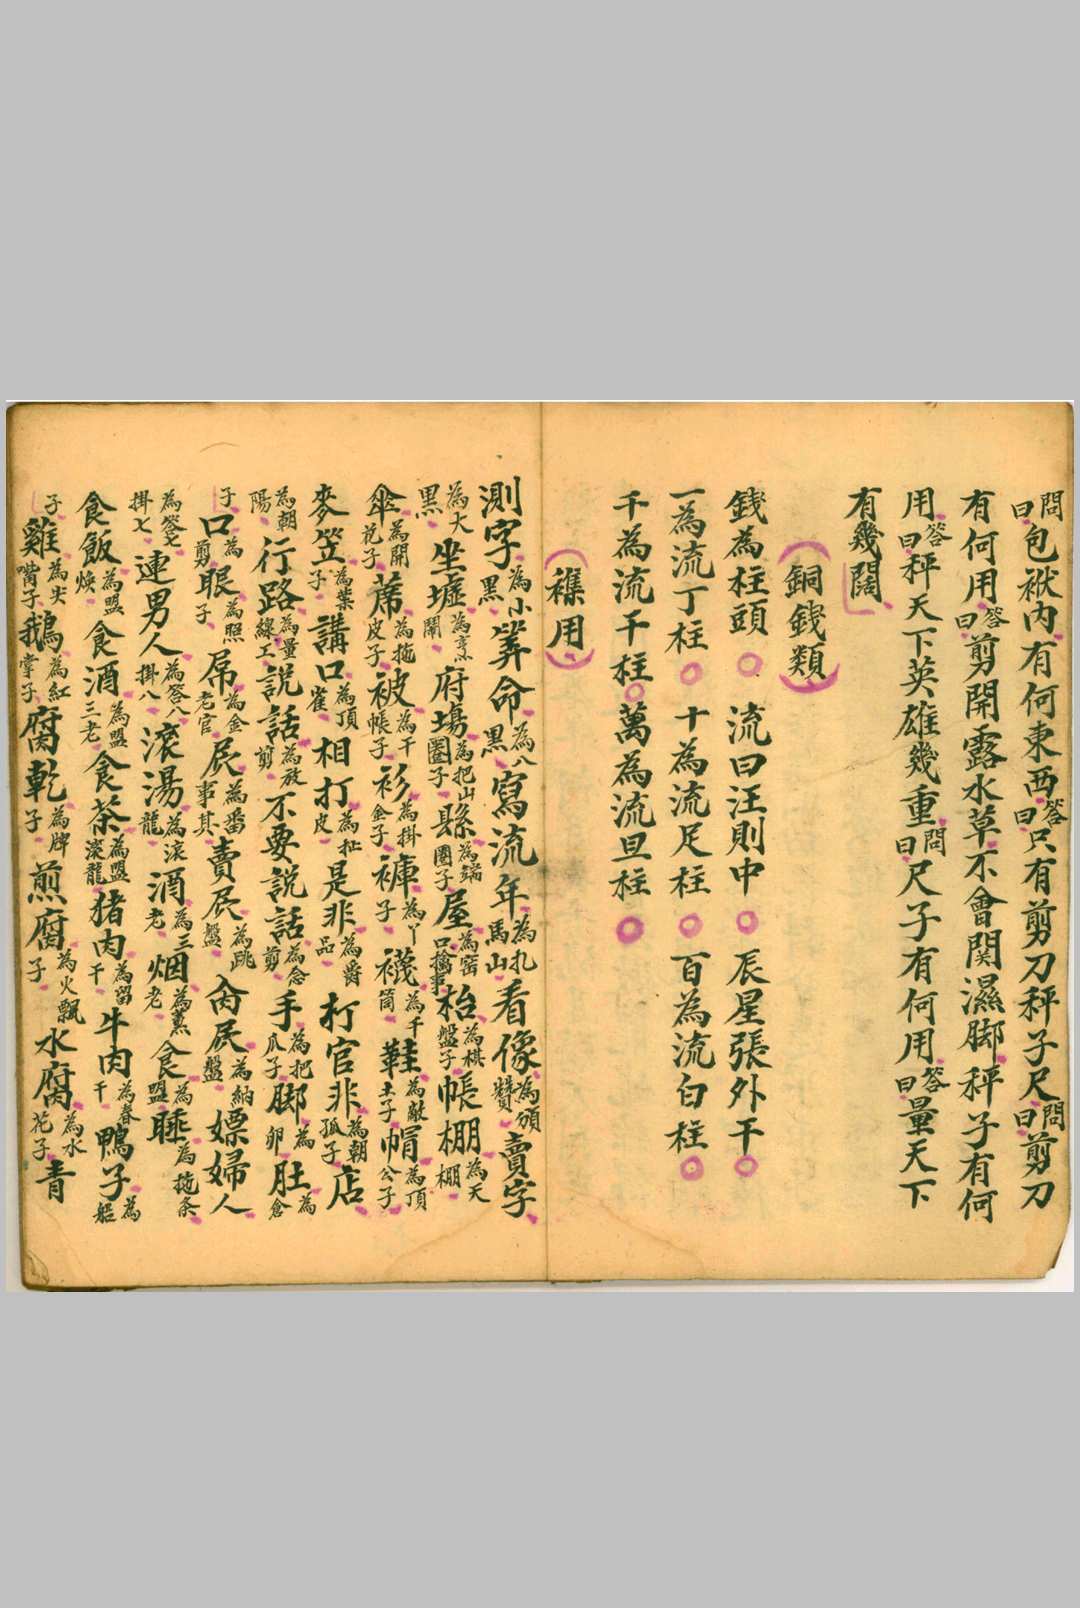 問曰包袱内有何東西答曰只有剪刀秤子尺問曰剪刀
有何用答曰剪開露水草不會関濕脚秤子有何
用答曰秤天下英雄幾重問曰尺子有何用答曰量天下
有幾闊
銅錢類
錢為柱頭 流曰汪則中 辰星張外干
一為流丁柱 十為流足柱 百為流白柱
千為流千柱 萬為流旦柱
襍用
測字為小黑 筭命為八黑 寫流年為扎馬山 看像為頒贊 賣字
為大黑 坐墟為烹鬧 府塲為把山圈子 縣為端圈子 屋為窑 枱為棋盤子 帳棚為天棚
傘為開花子 蓆為拖皮子 被為干帳子 衫為掛金子 褲為丫子 襪為千筒 鞋為敵土子 帽為頂公子
麥笠為葉子 講口為頂雀 相打為扯皮 是非為爵品 打官非為朝孤子 店
為朝陽 行路為量線工 說話為放剪 不要說話為念剪 手為把爪子 脚為卵 肚為倉
子 口為剪 眼為照子 屌為金老官 屄為番事其 賣屄為跳盤 肏屄為納盤 嫖婦人
為答七掛七 連男人為答八掛八 滚湯為滚龍 酒為三老 烟為薰老 食為盟 睡為拖条
食飯為盟煥 食酒為盟三老 食茶為盟滚龍 猪肉為留干 牛肉為春干 鴨子為船
子 雞為尖嘴子 鵝為紅掌子 腐乾為牌子 煎腐為火飄子 水腐為水花子 青